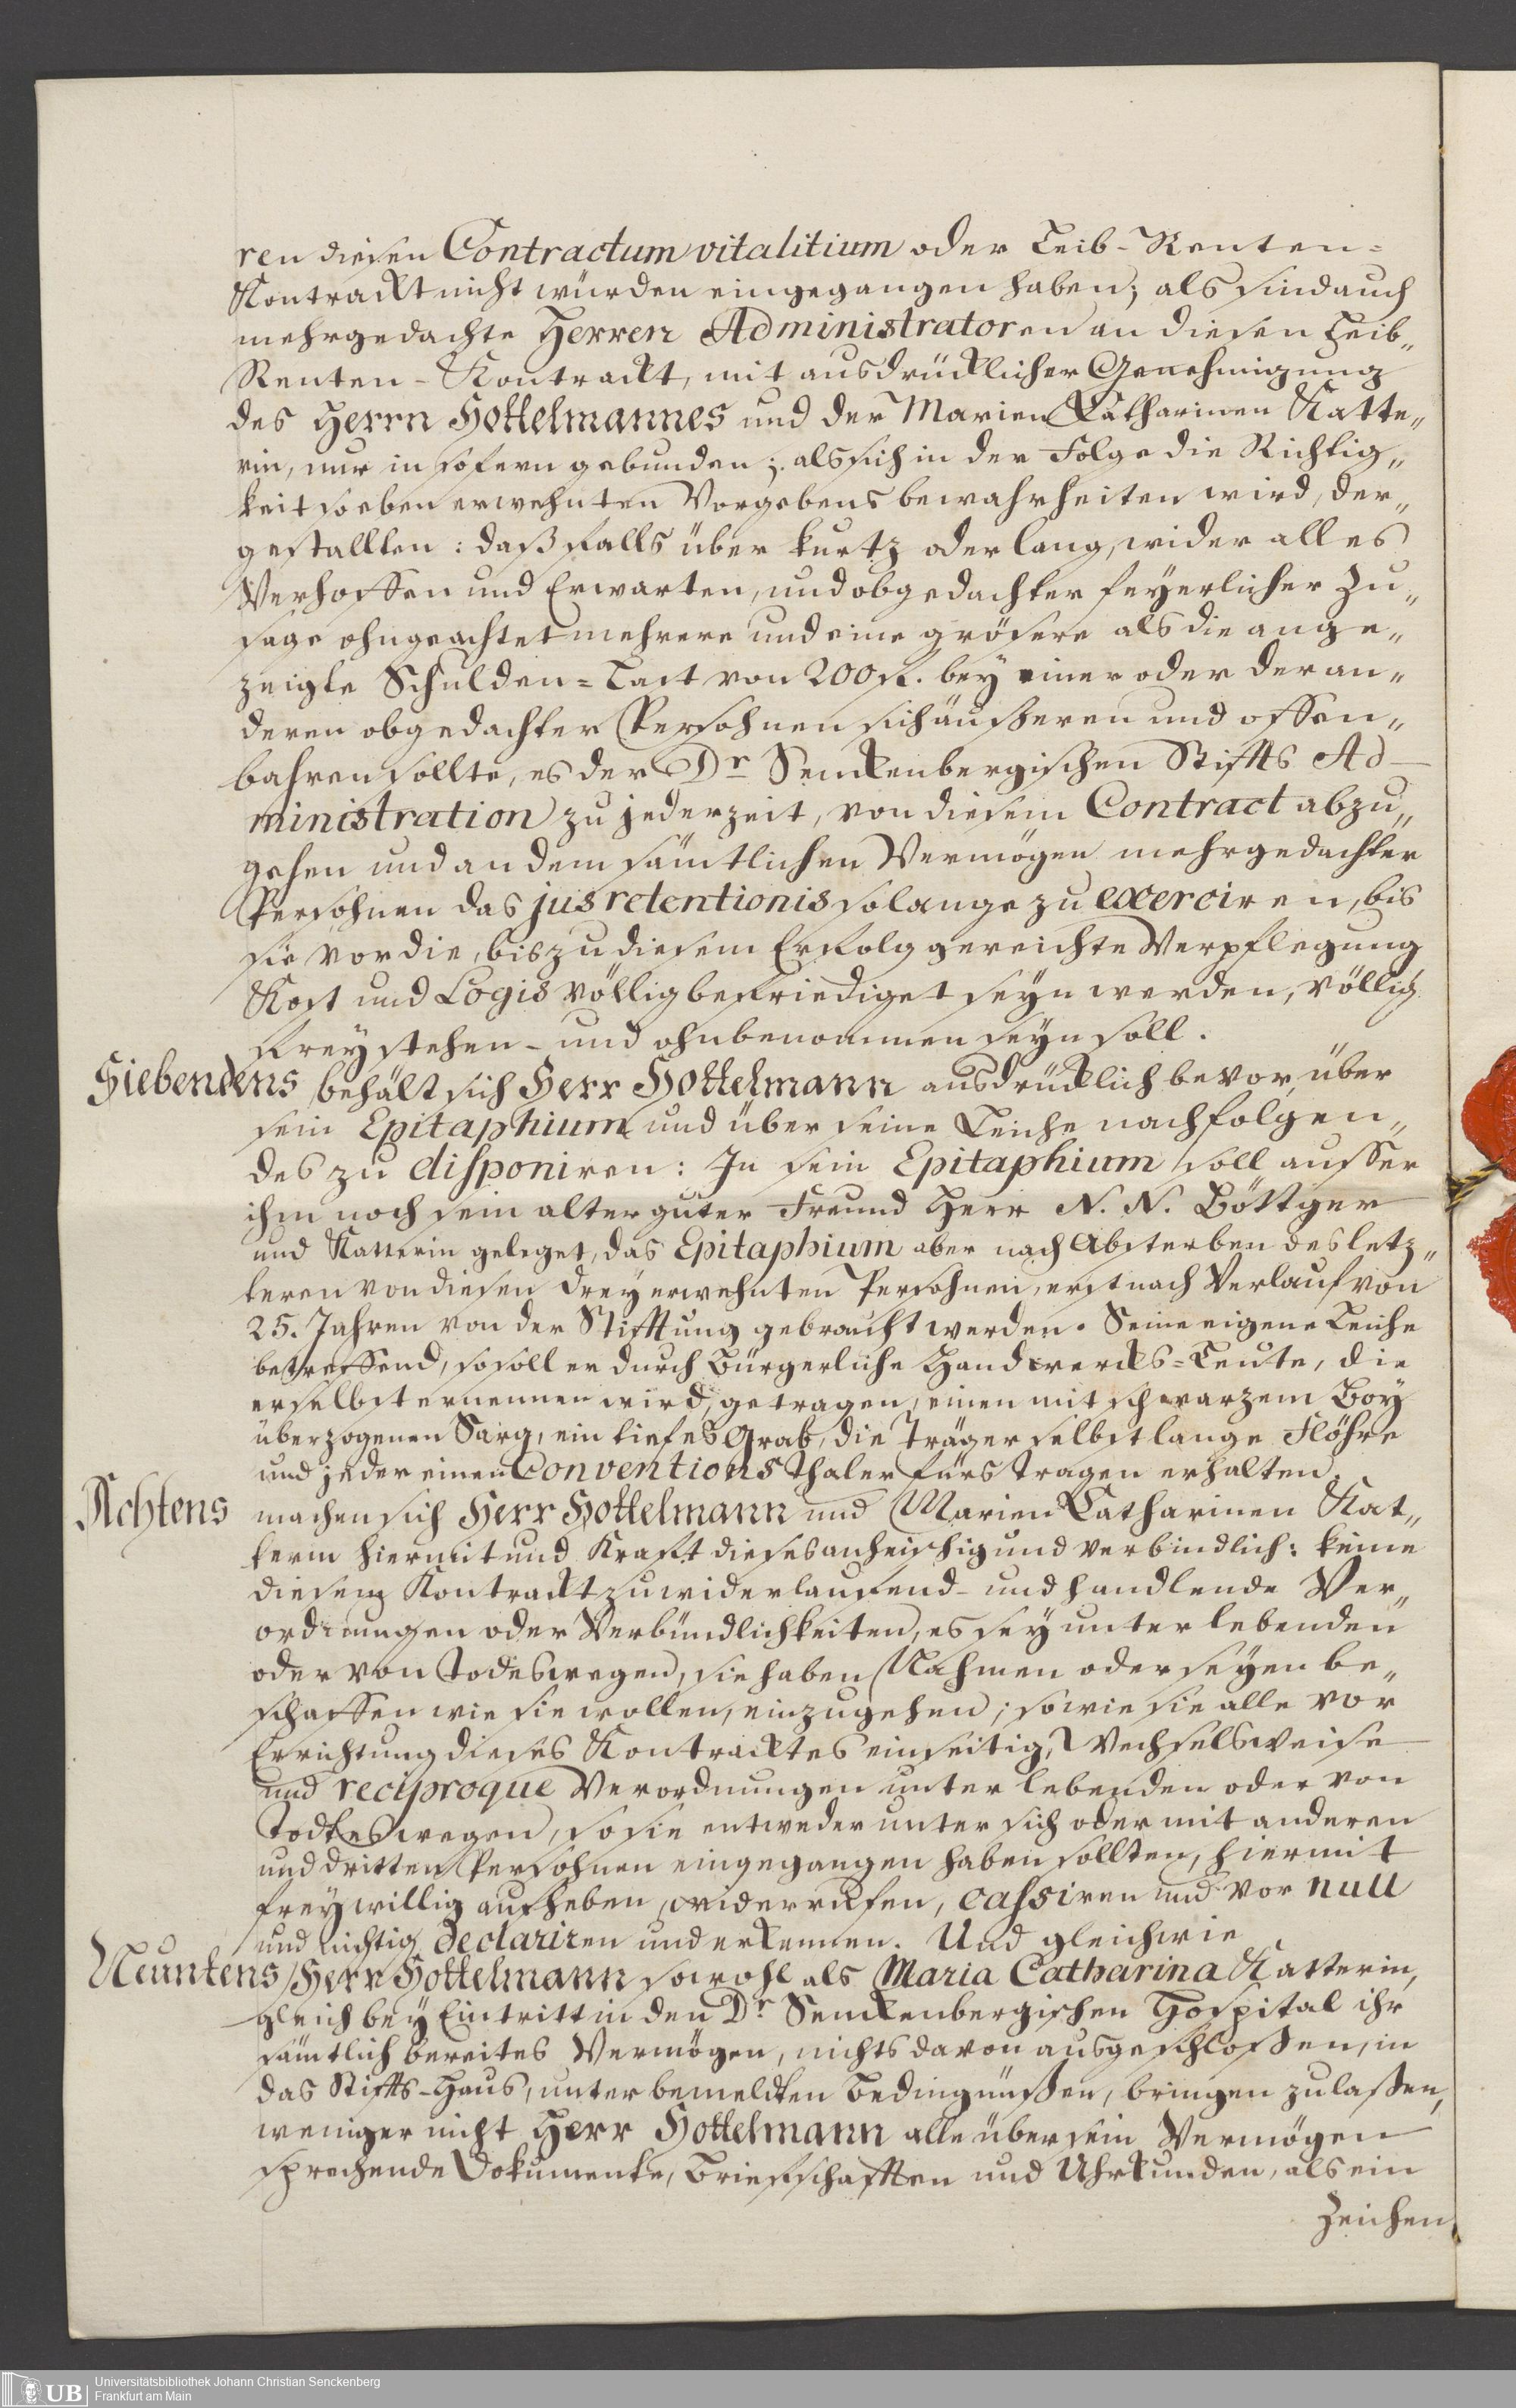 ren diesen Contractum vitalitium oder Leib-Renten=
Kontrackt nicht würden eingegangen haben; als sind auch
mehrgedachte Herren Administratoren an diesen Leib„
Renten-Kontrackt, mit ausdrücklicher Genehmigung
des Herrn Hottelmannes und der Marien Catharinen Katte„
rin, nur in sofern gebunden; als sich in der Folge die Richtig„
keit so eben erwehnten Vorgebens bewahrheiten wird, der„
gestallten: daß falls über kurtz oder lang, wider alles
Verhoffen und Erwarten, und obgedachter feyerlicher Zu„
sage ohngeachtet mehrere und eine grösere als die ange„
zeigte Schulden=Last von 200 fl. bey einer oder der an„
deren obgedachter Persohnen sich äusseren und offen„
bahren sollte, es der Dr Senckenbergischen Stiffts Ad—
ministration zu jederzeit, von diesem Contract abzu„
gehen und an dem sämtlichen Vermögen mehrgedachter
Persohnen das jus retentionis so lange zu exerciren, bis
sie vor die, bis zu diesem Erfolg gereichte Verpflegung
Kost und Logis völlig befriediget seyn werden, völlig
frey stehen- und ohnbenommen seyn soll.
Siebendens behält sich Herr Hottelmann ausdrücklich bevor, über
sein Epitaphium und über seine Leiche nachfolgen„
des zu disponiren: In sein Epitaphium soll ausser
ihm noch sein alter guter Freund Herr N. N. Böttger
und Katterin geleget, das Epitaphium aber nach Absterben des letz„
teren von diesen drey erwehnten Persohnen, erst nach Verlauf von
25. Jahren von der Stifftung gebraucht werden. Seine eigene Leiche
betreffend, so soll er durch Bürgerliche Handwercks=Leute, die
er selbst ernennen wird, getragen, einen mit schwarzem Boy
überzogenen Sarg, ein tiefes Grab, die Träger selbst lange Flöhre
und jeder einen Conventions Thaler fürs tragen erhalten.
Achtens machen sich Herr Hottelmann und Marien Catharinen Kat„
terin hiermit und Kraft dieses anheischig und verbindlich: keine
diesem Kontrackt zuwiderlaufend- und handlende Ver„
ordnungen oder Verbündlichkeiten, es sey unter lebenden
oder von Todeswegen, sie haben Nahmen oder seyen be„
schaffen wie sie wollen, einzugehen; so wie sie alle vor
Errichtung dieses Kontracktes einseitig, Wechselsweise
und reciproque Verordnungen unter lebenden oder von
Todteswegen, so sie entweder unter sich oder mit anderen
und dritten Persohnen eingegangen haben sollten, hiermit
freywillig aufheben, widerrufen, cassiren und vor null
und nichtig declariren und erkennen. Und gleichwie
Neuntens Herr Hottelmann sowohl als Maria Catharina Katterin,
gleich bey Eintritt in den Dr. Senckenbergischen Hospital ihr
sämtlich bereites Vermögen, nichts davon ausgeschlossen, in
das Stiffts-Haus, unter bemeldten Bedingnüssen, bringen zulassen,
weniger nicht Herr Hottelmann alle über sein Vermögen
sprechende Dokumente, Briefschafften und Uhrkunden, als ein
Zeichen
UB
Universitätsbibliothek Johann Christian Senckenberg
Frankfurt am Main